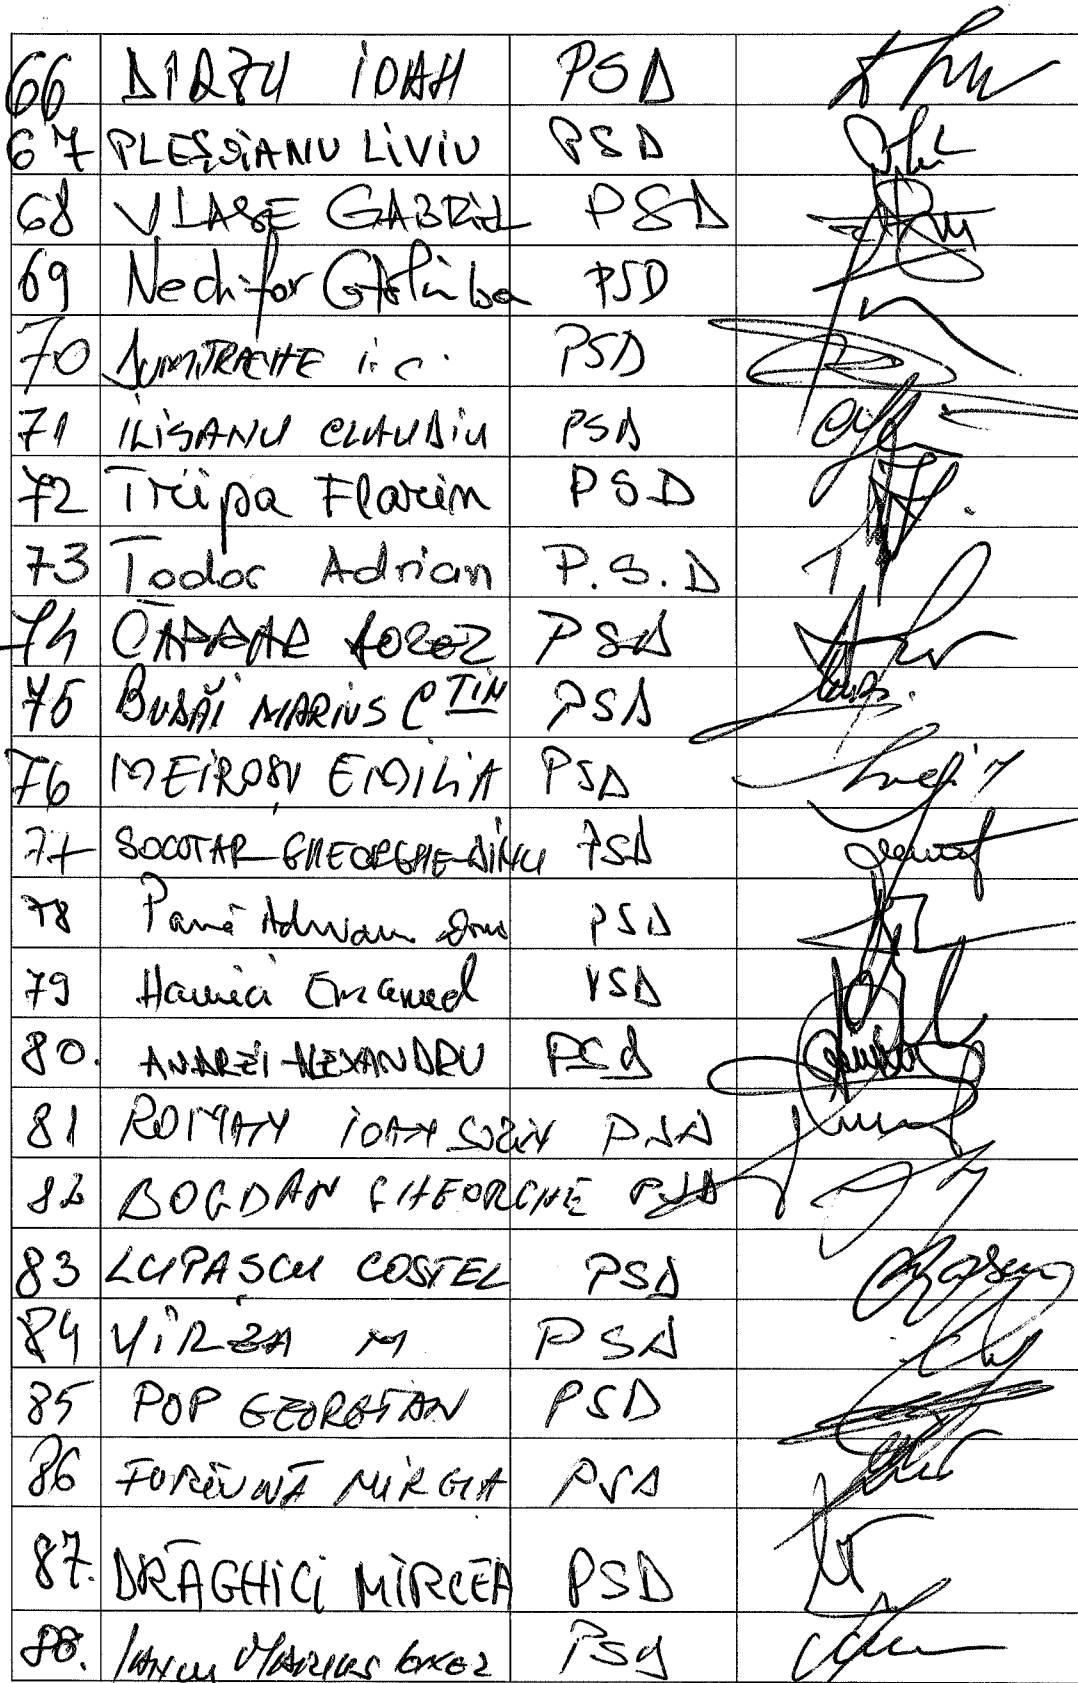 66 DIRZU IOAN PSD
67 PLEȘOIANU LIVIU PSD
68 VLASE GABRIEL PSD
69 Nechifor PSD
70 DUMITRACHE I. C. PSD
71 ILIȘANU CLAUDIU PSD
72 Tripa Florin PSD
73 Todor Adrian P.S.D
74 PSD
75 BUDĂI MARIUS CTIN PSD
76 MEIROȘU EMILIA PSD
77 SOCOTAR GHEORGHE-DINU PSD
78 Pană Adrian PSD
79 Havrici Emanuel PSD
80. ANDREI ALEXANDRU PSD
81 ROMAN IOAN SORIN PSD
82 BOGDAN GHEORGHE PSD
83 LUPAȘCU COSTEL PSD
84 VÎRZA M PSD
85 POP GEORGIAN PSD
86 FURTUNĂ MIRCEA PSD
87. DRĂGHICI MIRCEA PSD
88. IANCU MARIUS PSD